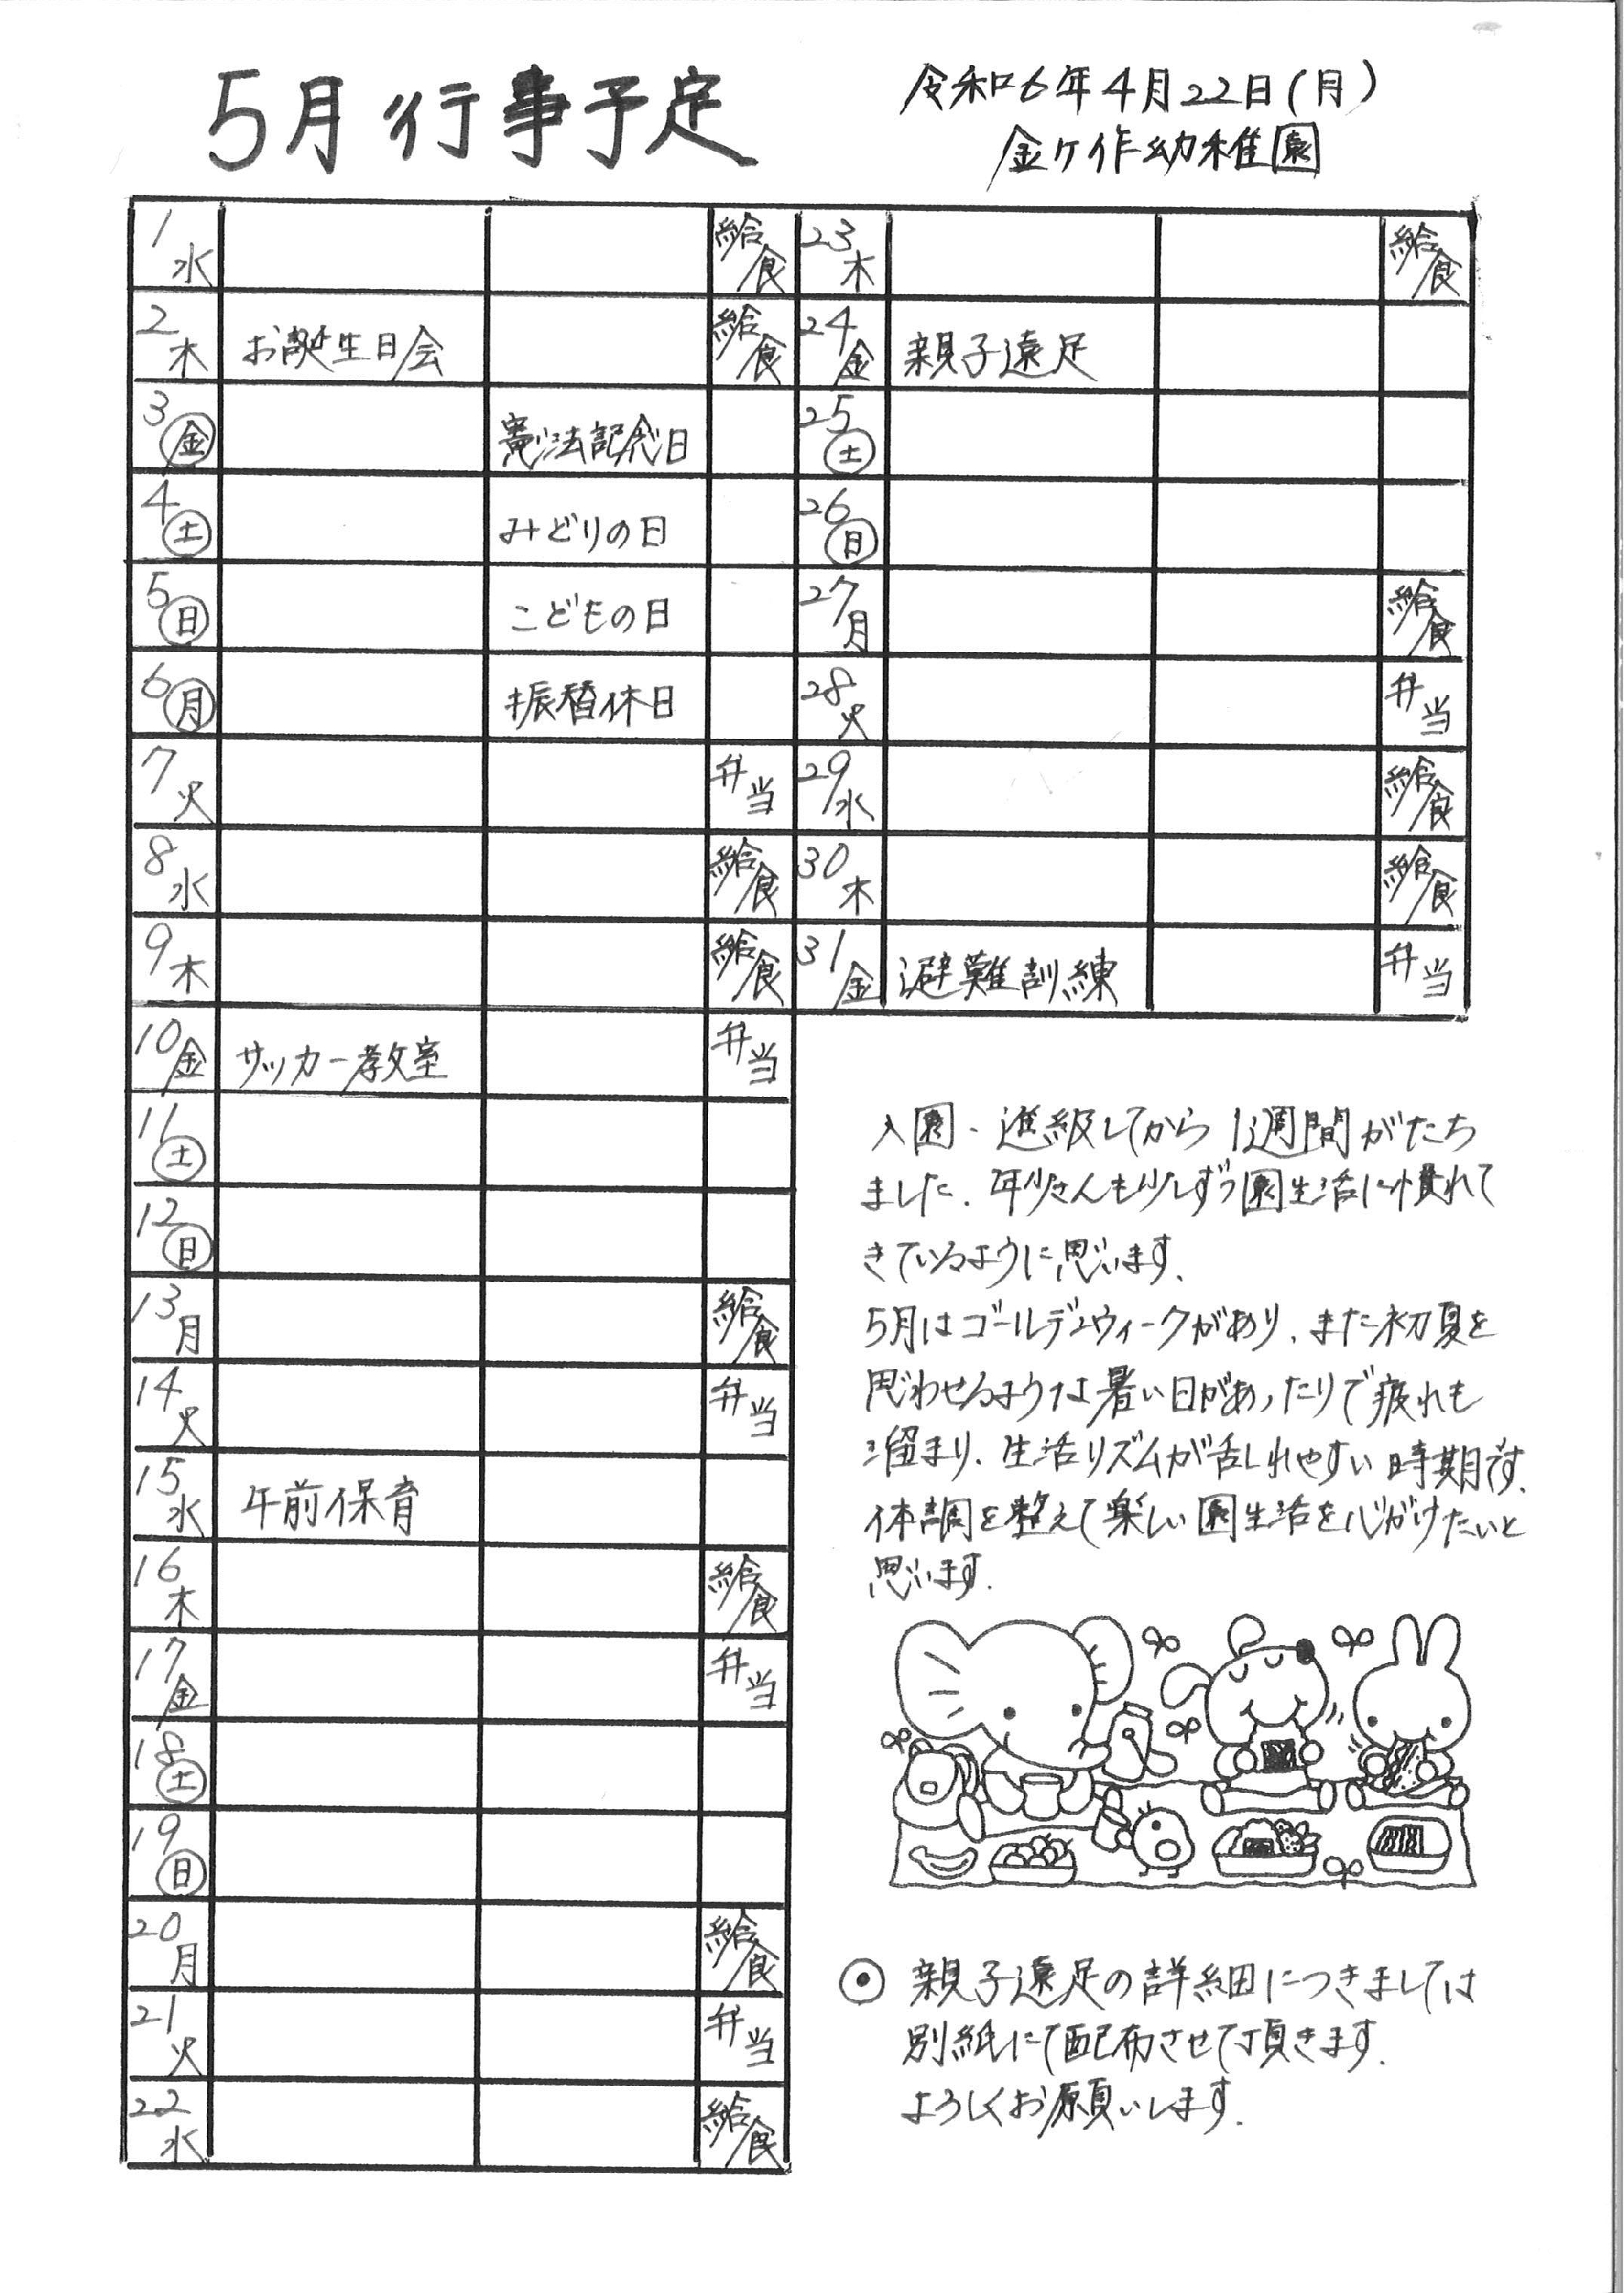 5月行事予定
令和6年4月22日(月)
金ケ作幼稚園
1 水 給食
2 木 お誕生日会 給食
3 金 憲法記念日
4 土 みどりの日
5 日 こどもの日
6 月 振替休日
7 火 弁当
8 水 給食
9 木 給食
10 金 サッカー教室 弁当
11 土
12 日
13 月 給食
14 火 弁当
15 水 午前保育
16 木 給食
17 金 弁当
18 土
19 日
20 月 給食
21 火 弁当
22 水 給食
23 木 給食
24 金 親子遠足
25 土
26 日
27 月 給食
28 火 弁当
29 水 給食
30 木 給食
31 金 避難訓練 弁当
入園・進級してから1週間がたち
ました。年少さんも少しずつ園生活に慣れて
きているように思います。
5月はゴールデンウィークがあり、また初夏を
思わせるような暑い日があったりで疲れも
溜まり、生活リズムが乱れやすい時期です。
体調を整えて楽しい園生活を心がけたいと
思います。
◉ 親子遠足の詳細につきましては
別紙にて配布させて頂きます。
よろしくお願いします。